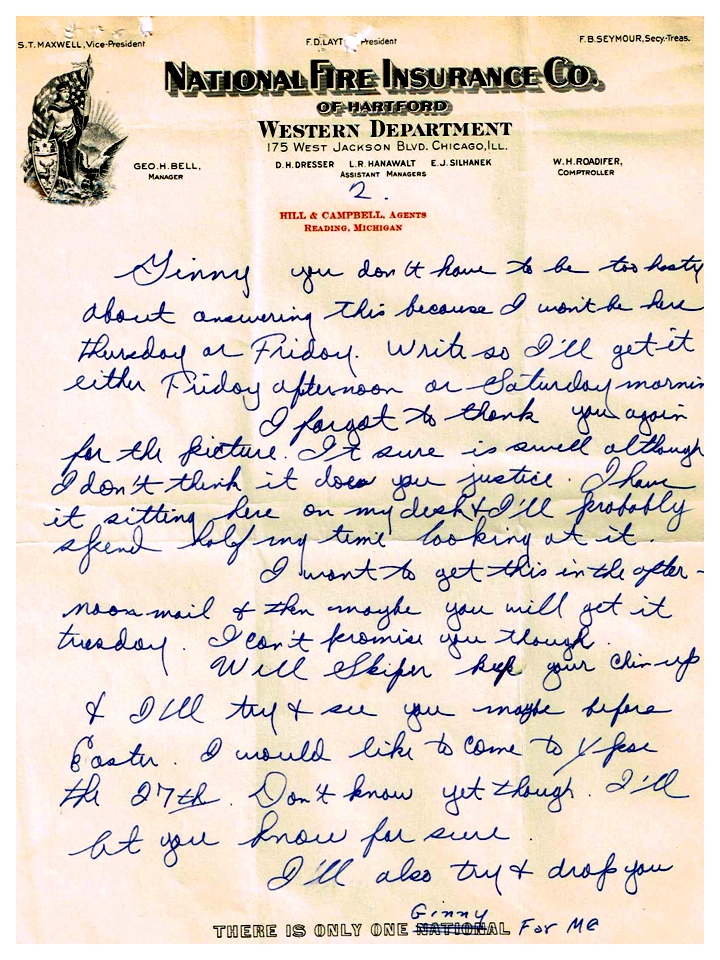 S.T. MAXWELL, Vice-President F.D. LAYT President F.B. SEYMOUR, Secy.-Treas.
NATIONAL FIRE INSURANCE CO.
OF HARTFORD
WESTERN DEPARTMENT
175 WEST JACKSON BLVD. CHICAGO, ILL.
GEO. H. BELL, MANAGER D.H. DRESSER L.R. HANAWALT E.J. SILHANEK ASSISTANT MANAGERS W.H. ROADIFER, COMPTROLLER
2.
HILL & CAMPBELL, AGENTS
READING, MICHIGAN
Ginny you don't have to be too hasty
about answering this because I won't be here
thursday or Friday. Write so I'll get it
either Friday afternoon or Saturday mornin
I forgot to thank you again
for the picture. It sure is swell although
I don't think it does you justice. I have
it sitting here on my desk & I'll probably
spend half my time looking at it.
I want to get this in the after-
noon mail & then maybe you will get it
tuesday. I can't promise you though.
Will Skiper keep your chin up
& I'll try & see you maybe before
Easter. I would like to come to Ypse
the 27th. Don't know yet though. I'll
let you know for sure.
I'll also try & drop you
Ginny
THERE IS ONLY ONE NATIONAL For Me